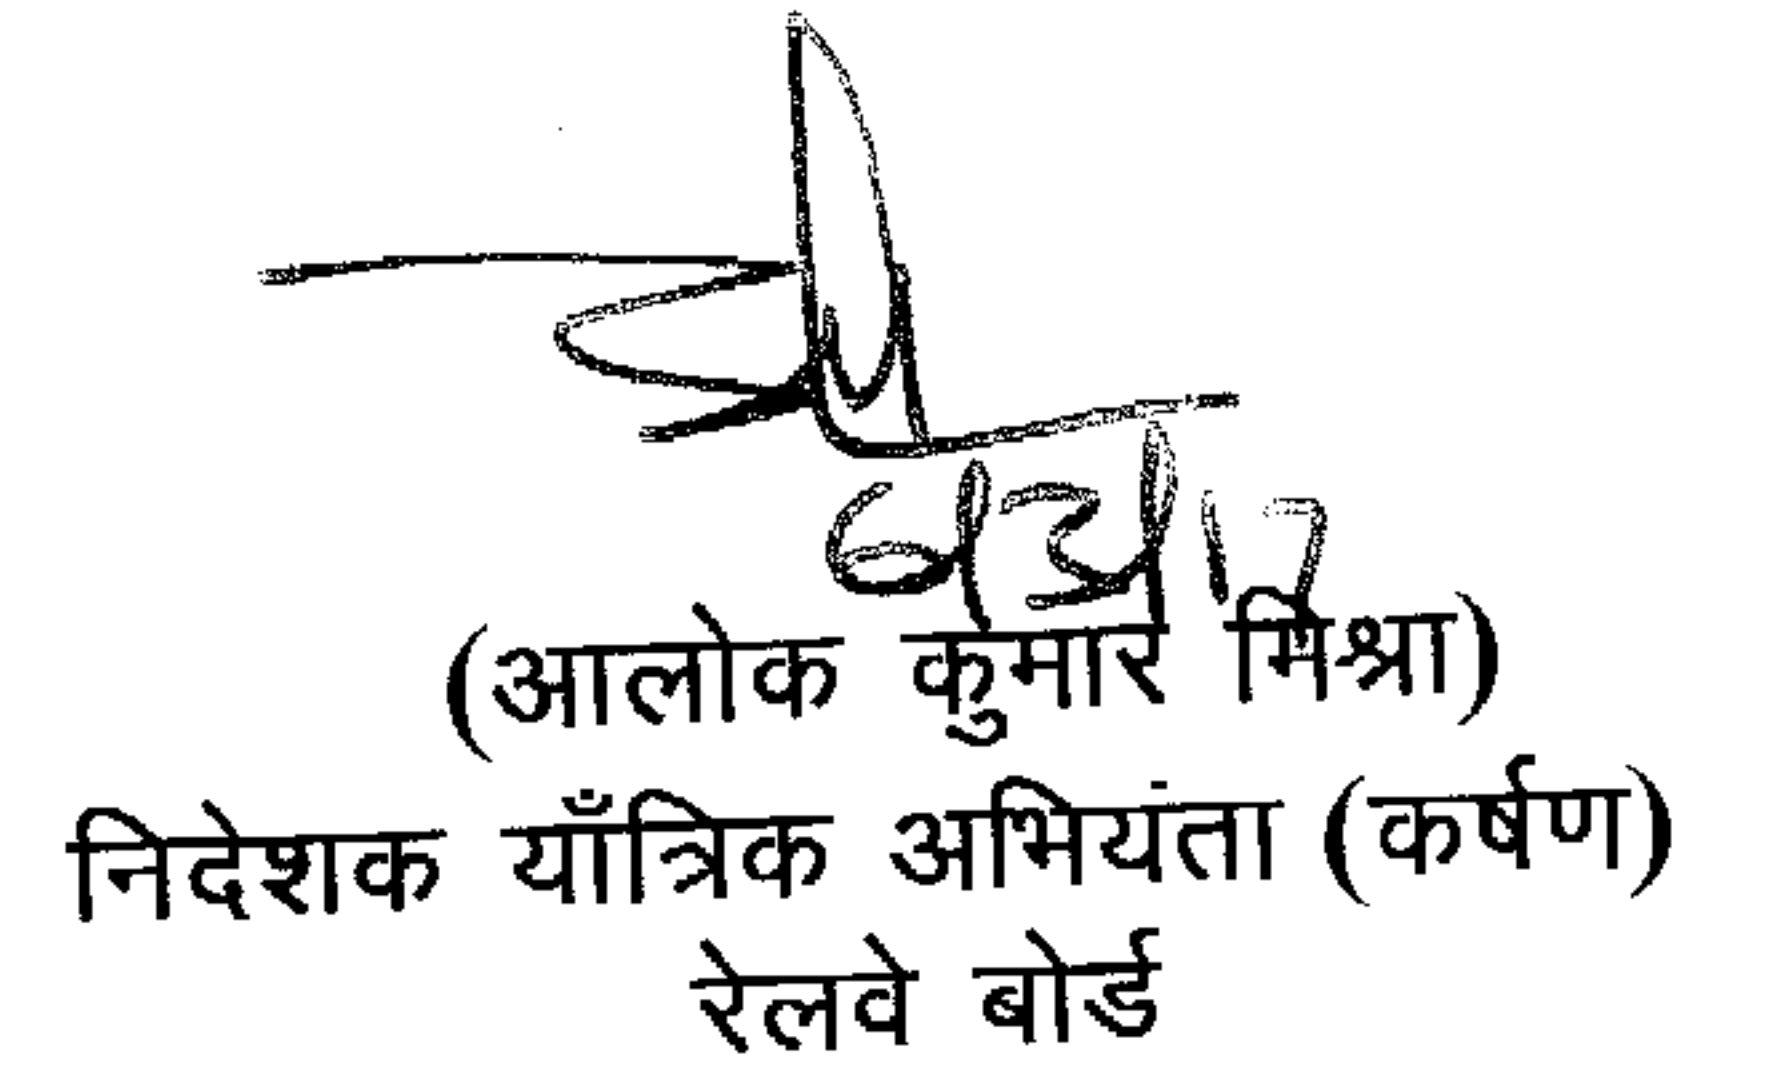 (आलोक कुमार मिश्रा)
निदेशक याँत्रिक अभियंता (कर्षण)
रेलवे बोर्ड